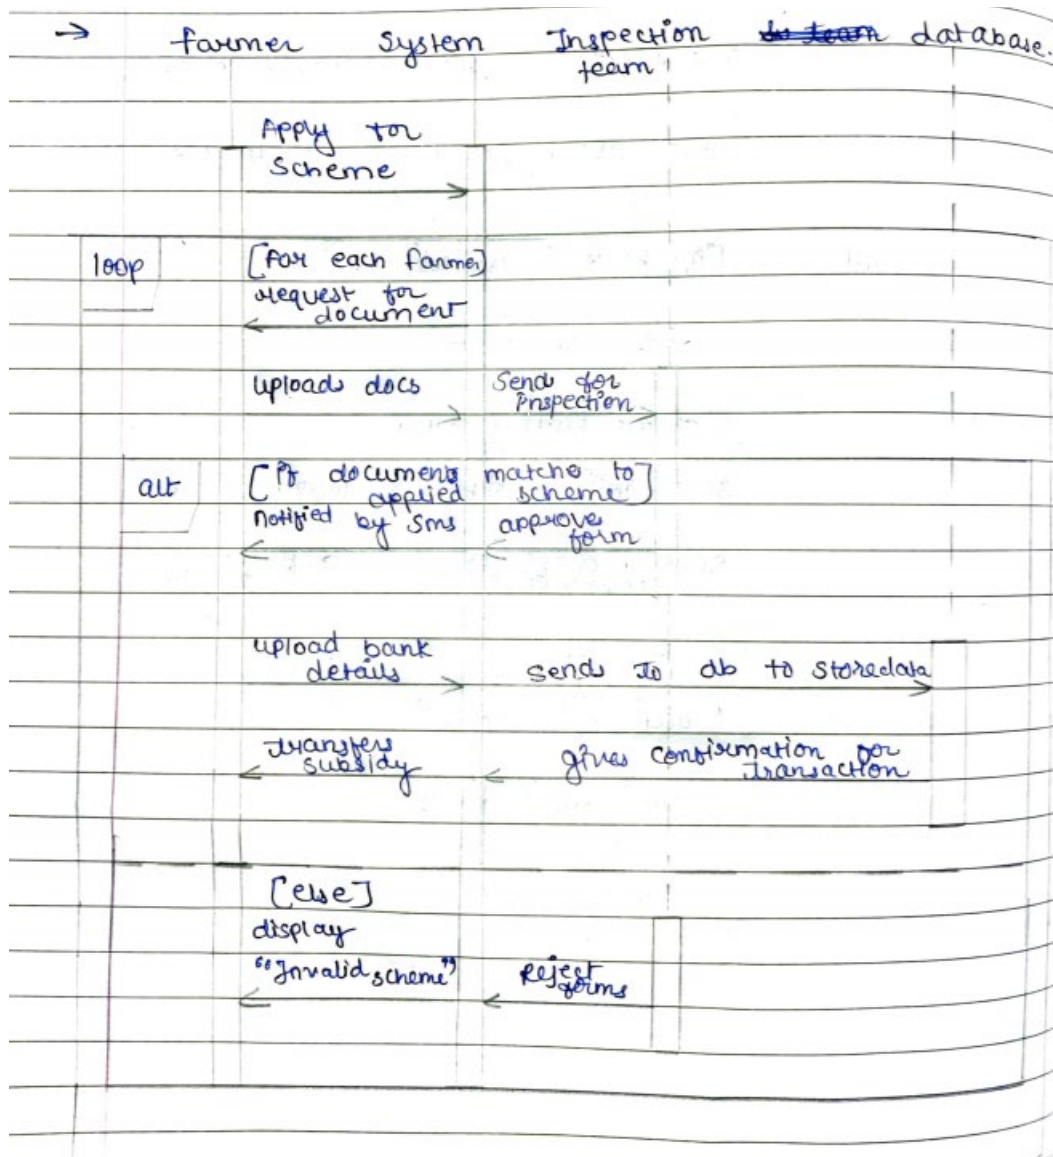 → farmer System Inspection team database.
team
Apply for
Scheme
loop [For each farmer]
request for
document
upload docs Send for
inspection
alt [if documents matche to]
applied scheme
notified by sms approve
form
upload bank
details sends to db to storedata
transfers
subsidy gives confirmation for
transaction
[else]
display
"Invalid scheme" Reject
forms